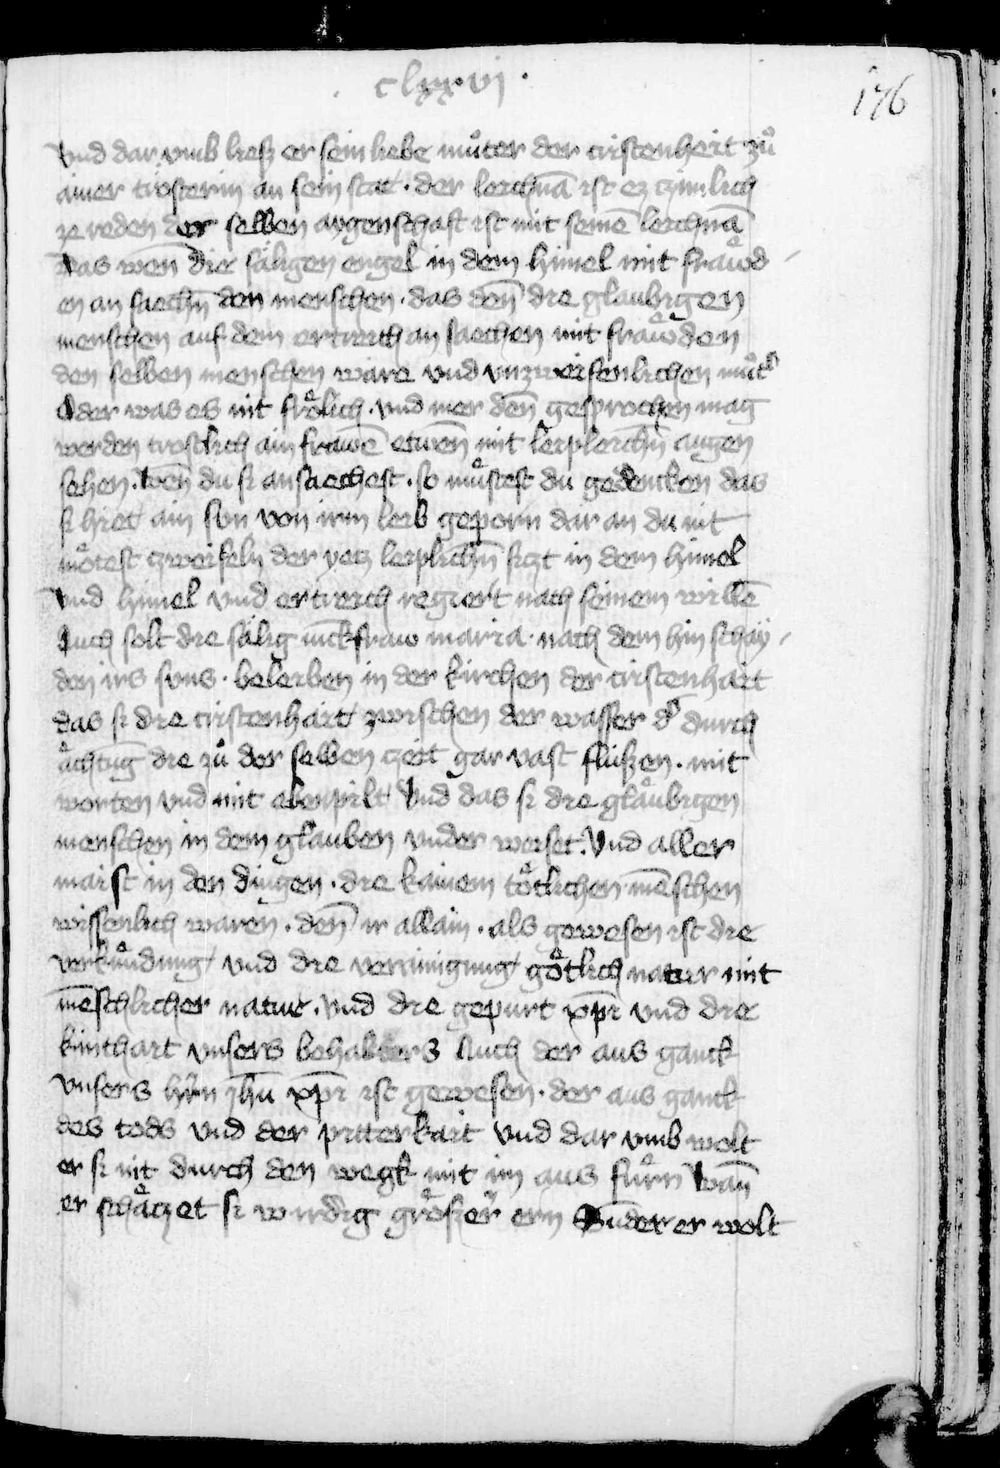 clxxvi ·
176
Vnd dar vmb liesz er sein liebe mu᷎ter der cristenheit zu᷎
ainer trösterin an sein stat · der leichnā ist ez tzimlich
ze reden der selben aygenschaft ist mit seinē leichnā
Das wen̄ die säligen engel in dem himel mit fraẅd-
en an saechn̄ den menschen · das den̄ die glaubigen
menschen auf dem ertreich an saechen mit fraẅden
den selben menschen ware vnd vnzweifenlichen mu᷎t᷎
Oder was es nit frölich · vnd mer den̄ gesprochen mag
werden trostlich ain frawē etwen̄ mit leiplerchn̄ augen
sehen · Wen̄ du si ansaechest · so müstest du gedencken das
si hiet ain sun von irm leib geporn dar an du nit
mötest tzweifeln der yetz leiplichn̄ sitzt in dem himel
Vnd himel vnd ertreich regiert nach seinem willē
Auch solt die sälig iūckfraw maria · nach dem hin schäy-
den irs suns · beleiben in der kirchen der cristenhait
das si die cristenhait zwischen der wasser d᷎ durch
ächtūg die zu᷎ der selben tzeit gar vast fluszen · mit
worten vnd mit ebenpilt Vnd das si die gläubigen
menschen in dem glauben vnder weiset · Vnd aller
maist in den dingen · die kainem tötlichen mēschen
wissenlich waren · den̄ ir allain · als gewesen ist die
verkündung vnd die verainigung götlich natur mit
mēschlicher natur · vnd die gepurt xp̄i vnd die
kinthait vnsers behalters Auch der aus ganck
vnsers hr̄n jhū xp̄i ist gewesen · der aus ganck
des tods vnd der pitterkait vnd dar vmb wolt
er si nit durch den wegk mit im aus fürn Wan̄
er schätzet si wirdig gröszer ern Sūder er wolt